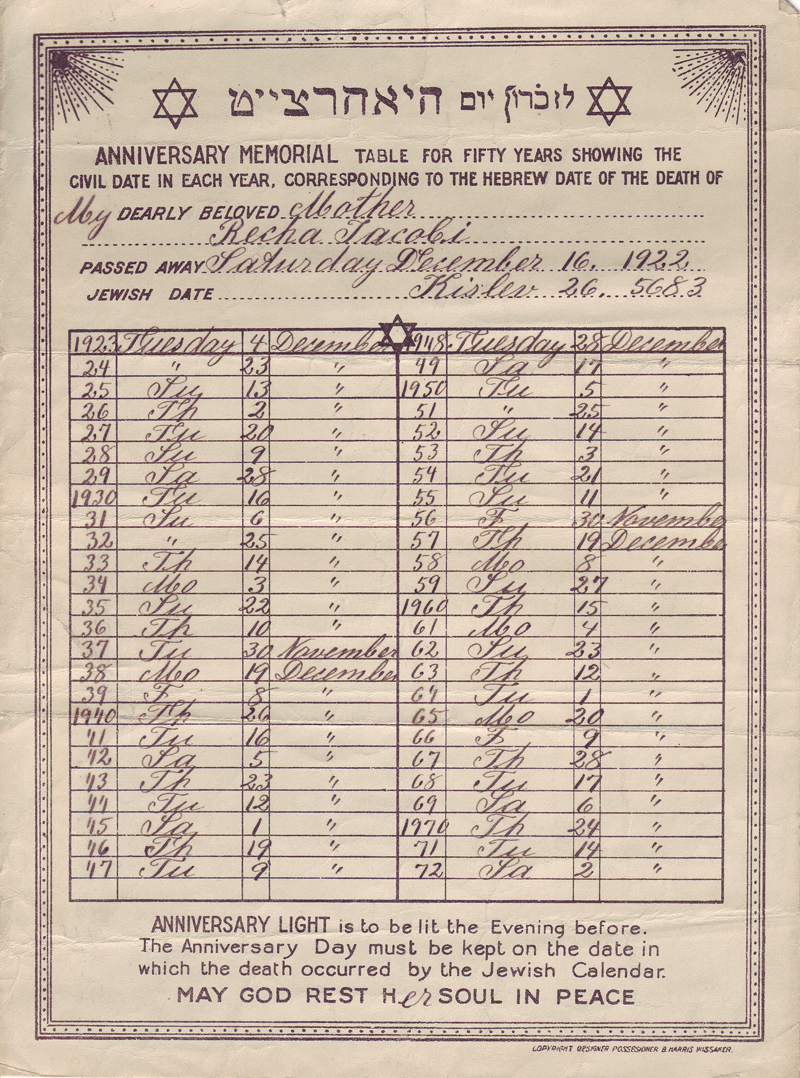 לזכרון יום היאהרצייט
ANNIVERSARY MEMORIAL TABLE FOR FIFTY YEARS SHOWING THE
CIVIL DATE IN EACH YEAR, CORRESPONDING TO THE HEBREW DATE OF THE DEATH OF
My DEARLY BELOVED Mother
Recha Jacobi
PASSED AWAY Saturday December 16. 1922
JEWISH DATE Kislev 26. 5683
1923 Tuesday 4 December 1948 Tuesday 28 December
24 " 23 " 49 Sa 17 "
25 Su 13 " 1950 Tu 5 "
26 Th 2 " 51 " 25 "
27 Tu 20 " 52 Su 14 "
28 Su 9 " 53 Th 3 "
29 Sa 28 " 54 Tu 21 "
1930 Tu 16 " 55 Su 11 "
31 Su 6 " 56 F 30 November
32 " 25 " 57 Th 19 December
33 Th 14 " 58 Mo 8 "
34 Mo 3 " 59 Su 27 "
35 Su 22 " 1960 Th 15 "
36 Th 10 " 61 Mo 4 "
37 Tu 30 November 62 Su 23 "
38 Mo 19 December 63 Th 12 "
39 F 8 " 64 Tu 1 "
1940 Th 26 " 65 Mo 20 "
41 Tu 16 " 66 F 9 "
42 Sa 5 " 67 Th 28 "
43 Th 23 " 68 Tu 17 "
44 Tu 12 " 69 Sa 6 "
45 Sa 1 " 1970 Th 24 "
46 Th 19 " 71 Tu 14 "
47 Tu 9 " 72 Sa 2 "
ANNIVERSARY LIGHT is to be lit the Evening before.
The Anniversary Day must be kept on the date in
which the death occurred by the Jewish Calendar.
MAY GOD REST Her SOUL IN PEACE
COPYRIGHT DESIGNER POSSESIONER B. HARRIS WASSAKER.